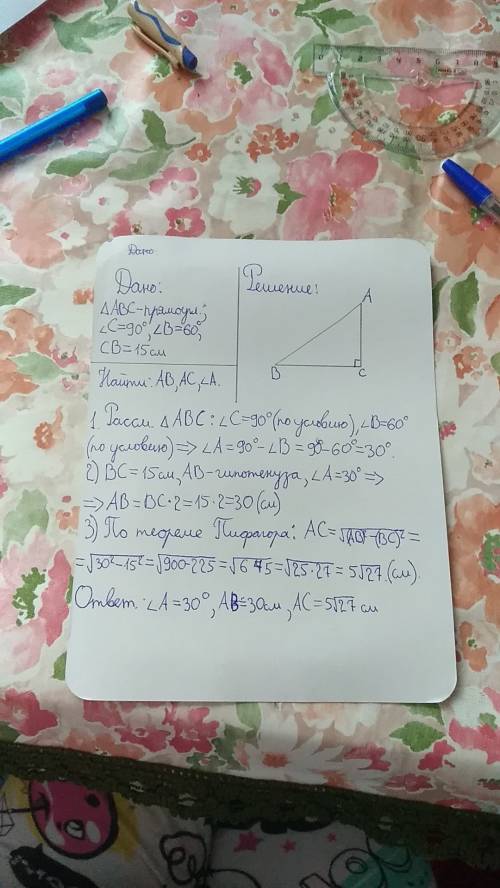 Дано
Дано:
ΔABC-прямоуг.;
∠C=90°, ∠B=60°,
CB=15см
Найти: AB, AC, ∠A.
Решение:
A
B
C
1. Рассм. ΔABC: ∠C=90° (по условию), ∠B=60°
(по условию) => ∠A=90°-∠B=90-60°=30°.
2) BC=15см, AB-гипотенуза, ∠A=30° =>
=> AB=BC·2=15·2=30(см)
3) По теореме Пифагора: AC=√(AB)²-(BC)²=
=√30²-15²=√900-225=√675=√25·27=5√27.(см).
Ответ: ∠A=30°, AB=30см, AC=5√27 см